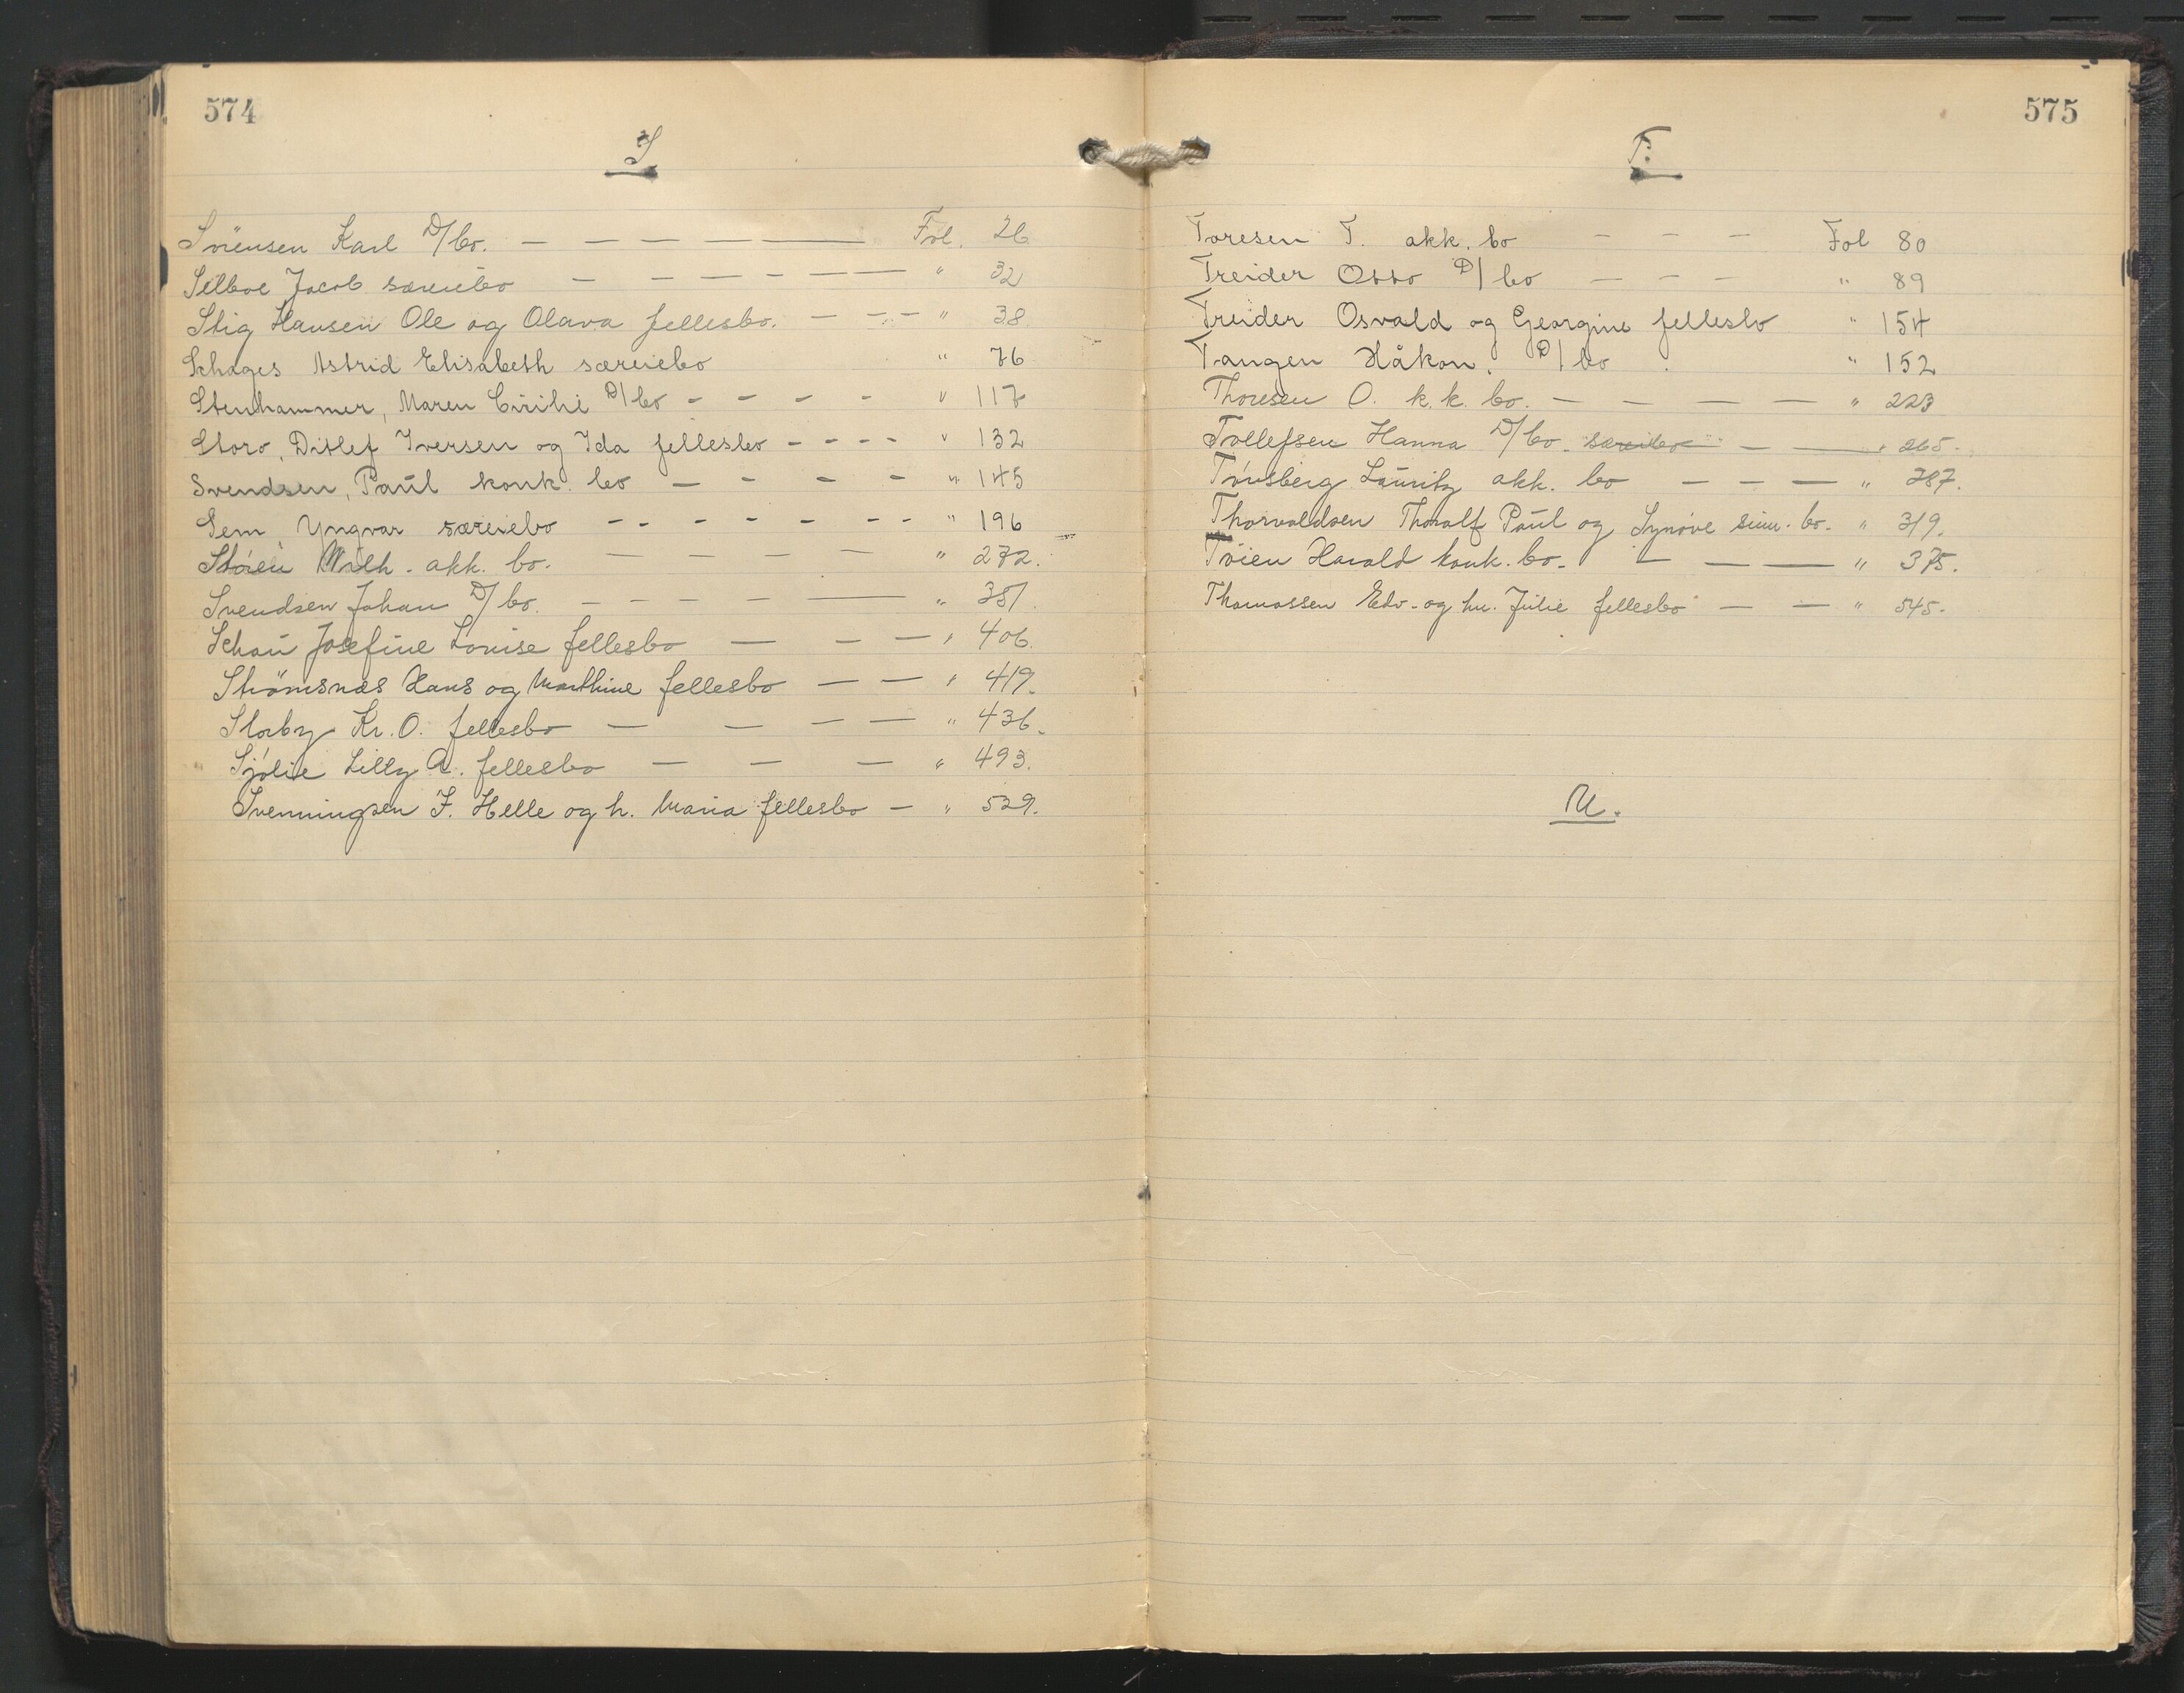 574
S
Sörensen Karl D/bo. — — — — — — Fol. 26
Selboe Jacob særeiebo — — — — — — " 32
Stig Hansen Ole og Olava fellesbo. — — — " 38
Schages Astrid Elisabeth særeiebo " 76
Stenhammer, Maren D/bo - - - - " 117
Storo, Ditlef Iversen og Ida fellesbo - - - - " 132
Svendsen, Paul konk. bo - - - - " 145
Sem, Yngvar særeiebo - - - - - - - " 196
Støren Wilh. akk. bo. — — — — " 272.
Svendsen Johan D/bo. — — — — — " 381.
Schau Josefine Louise fellesbo — — — " 406.
Strömsnæs Hans og Marthine fellesbo — — " 419.
Storby Kr. O. fellesbo — — — — " 436.
Sjölie Lilly A. fellesbo — — — " 493.
Svenningsen F. Helle og h. Maria fellesbo — " 529.
575
T.
Toresen T. akk. bo — — — Fol 80
Treider Otto D/bo — — — " 89
Treider Osvald og Georgine fellesbo " 154
Tangen Håkon. D/bo " 152
Thoresen O. k.k. bo. — — — — " 223
Tollefsen Hanna D/bo. særeiebo — — " 265.
Tönsberg Lauritz akk. bo — — — " 287.
Thorvaldsen Thoralf Paul og Synöve sinn. bo. " 319.
Töien Harald konk. bo. — — — " 375.
Thomassen Edv. og hu. Julie fellesbo — — " 545.
U.